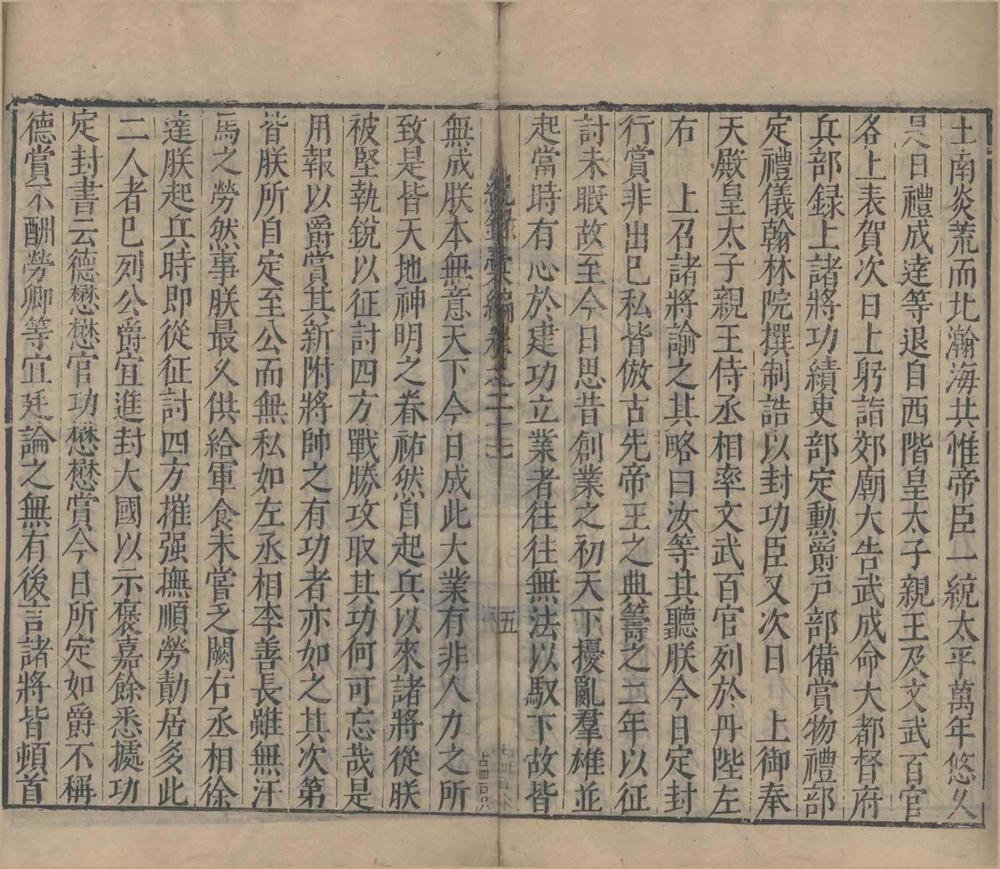 土南炎荒而北瀚海共惟帝臣一統太平萬年悠久
是日禮成達等退自西階皇太子親王及文武百官
各上表賀次日上躬詣郊廟大告武成命大都督府
兵部録上諸將功績吏部定勲爵戸部備賞物禮部
定禮儀翰林院撰制誥以封功臣又次日　上御奉
天殿皇太子親王侍丞相率文武百官列於丹陛左
右　上召諸將諭之其略曰汝等其聽朕今日定封
行賞非出巳私皆倣古先帝王之典籌之二年以征
討未暇故至今日思昔創業之初天下擾亂羣雄並
起當時有心於建功立業者往往無法以馭下故皆
紀録彙編 卷之二十七
五
無成朕本無意天下今日成此大業有非人力之所
致是皆天地神明之眷祐然自起兵以來諸將從朕
被堅執銳以征討四方戰勝攻取其功何可忘哉是
用報以爵賞其新附將帥之有功者亦如之其次第
皆朕所自定至公而無私如左丞相李善長雖無汗
馬之勞然事朕最乆供給軍食未嘗乏闕右丞相徐
達朕起兵時即從征討四方摧强撫順勞勣居多此
二人者巳列公爵宜進封大國以示褒嘉餘悉據功
定封書云德懋懋官功懋懋賞今日所定如爵不稱
德賞不酬勞卿等宜廷論之無有後言諸將皆頓首